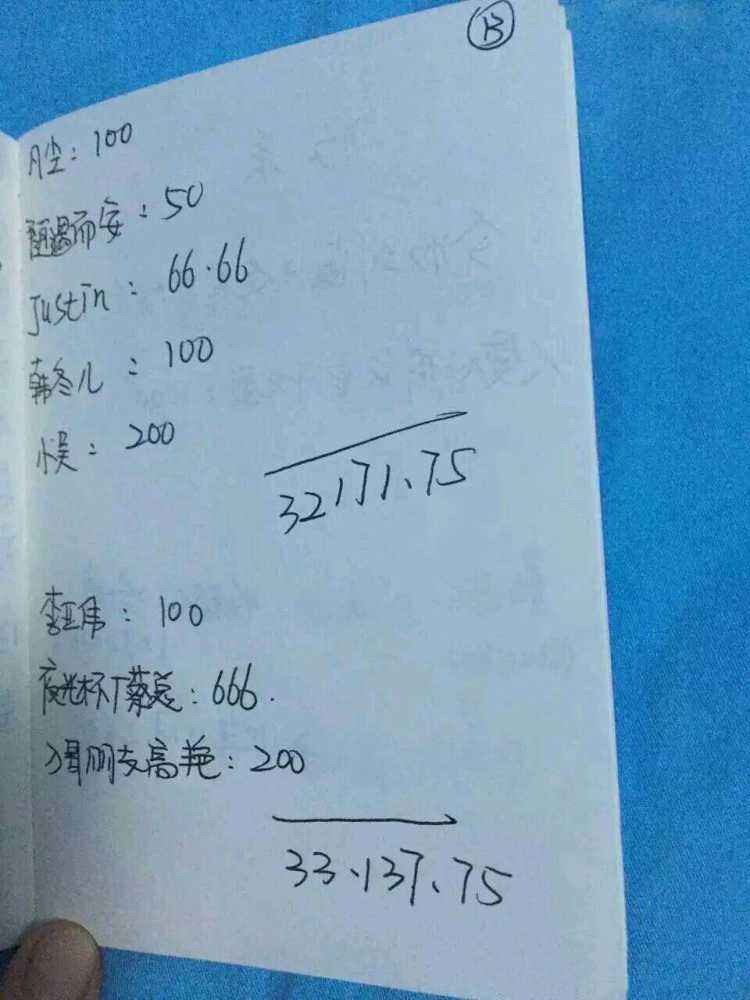 ⑬
月尘：100
随遇而安：50
Justin：66.66
韩冬儿：100
小吴：200
32171.75
李亚伟：100
夜光杯厂蔡总：666.
冯朋友高艳：200
33.137.75